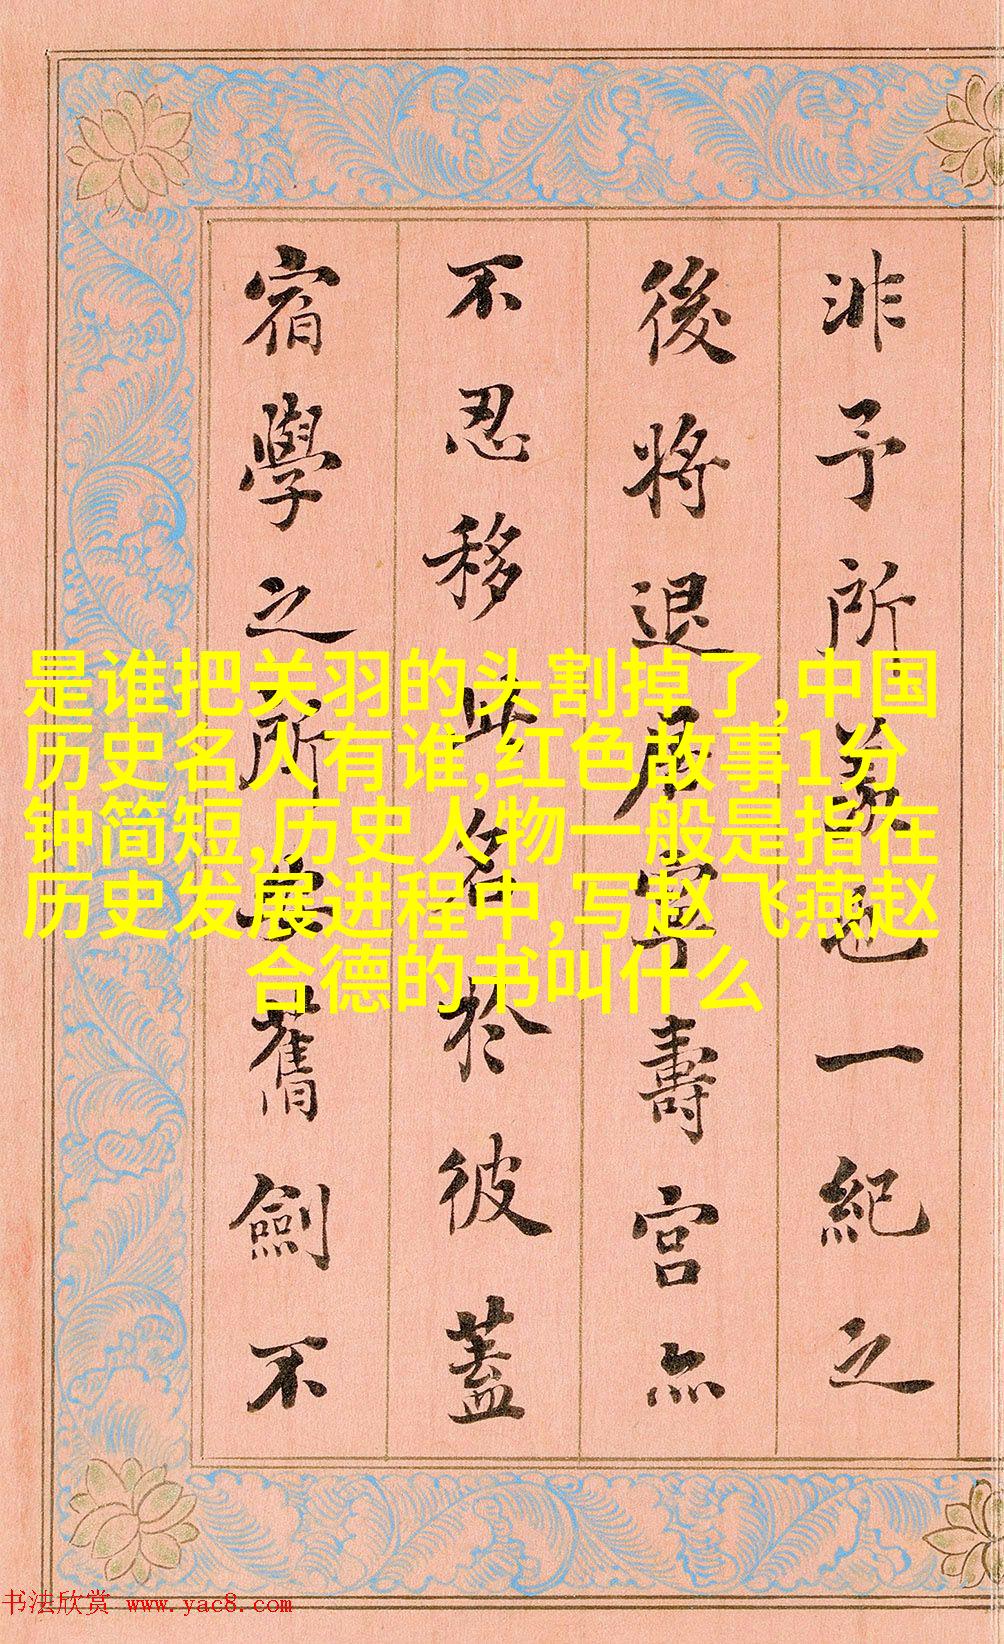 非予所羡也一紀之
後將退居寧壽宮亦
不忍移此名於彼蓋
宿學之所安舊劍不
是谁把关羽的头割掉了,中国
历史名人有谁,红色故事1分
钟简短,历史人物一般是指在
历史发展进程中,写赵飞燕赵
合德的书叫什么
书法欣赏 www.yac8.com